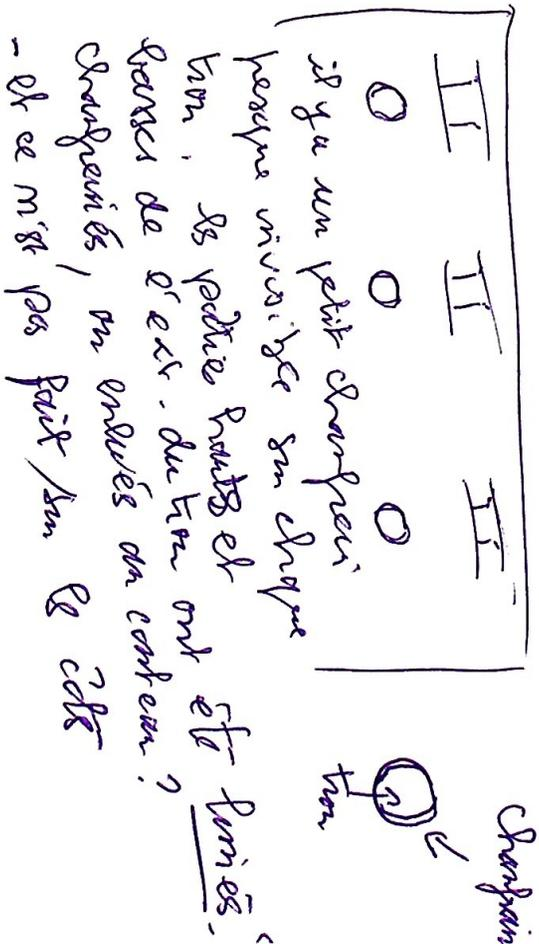 II II II
il y a un petit chanfrein
presque invisible sur chaque
trou. les parties hautes et
basses de l'ext. du trou ont été limées.
chanfreinés, ou enlevés au couteau?
- et ce n'est pas fait sur le côté
chanfrein
trou